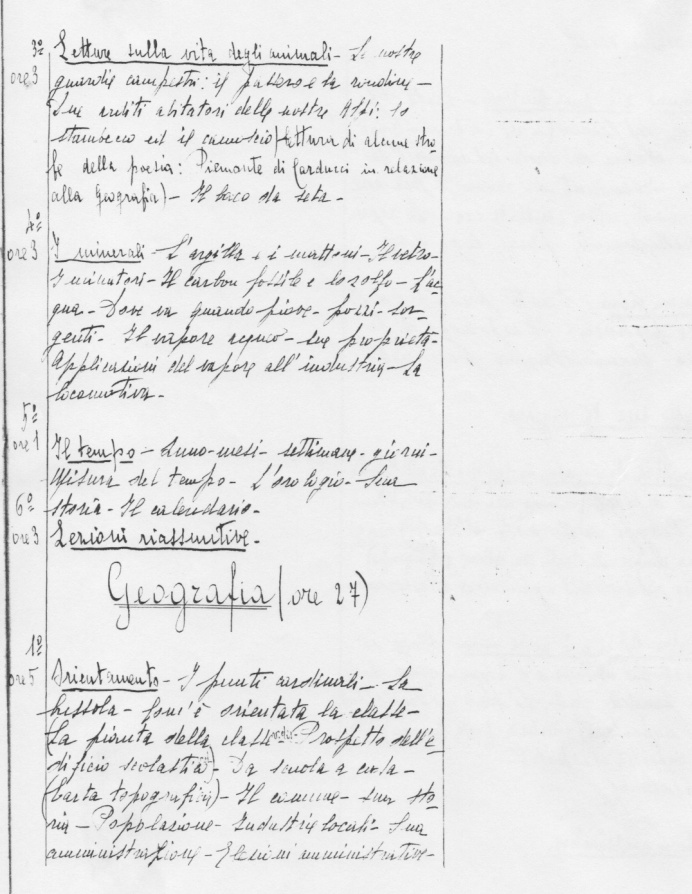 3º Letture sulla vita degli animali - Le nostre
ore 3 guardie campestri: il passero e la rondine -
Due arditi abitatori delle nostre Alpi: lo
stambecco ed il camoscio (lettura di alcune stro
fe della poesia: Piemonte di Carducci in relazione
alla Geografia) - Il baco da seta -
4º
ore 3 I minerali - L'argilla e i mattoni - Il vetro -
I minatori - Il carbon fossile e lo zolfo - L'ac
qua - Dove va quando piove - pozzi - sor-
genti - Il vapore acqueo - sue proprietà -
Applicazioni del vapore all'industria - La
locomotiva -
5º
ore 1 Il tempo - Anno - mesi - settimane - giorni -
Misura del tempo - L'orologio - Sua
6º storia - Il calendario -
ore 3 Lezioni riassuntive -
Geografia (ore 27)
1º
ore 5 Orientamento - I punti cardinali - La
bussola - Com'è orientata la classe -
(La pianta della classe - Prospetto dell'e
dificio scolastico) - Da scuola a casa -
(Carta topografica) - Il comune - sua sto
ria - Popolazione - Industrie locali - Sua
amministrazione - Elezioni amministrative -